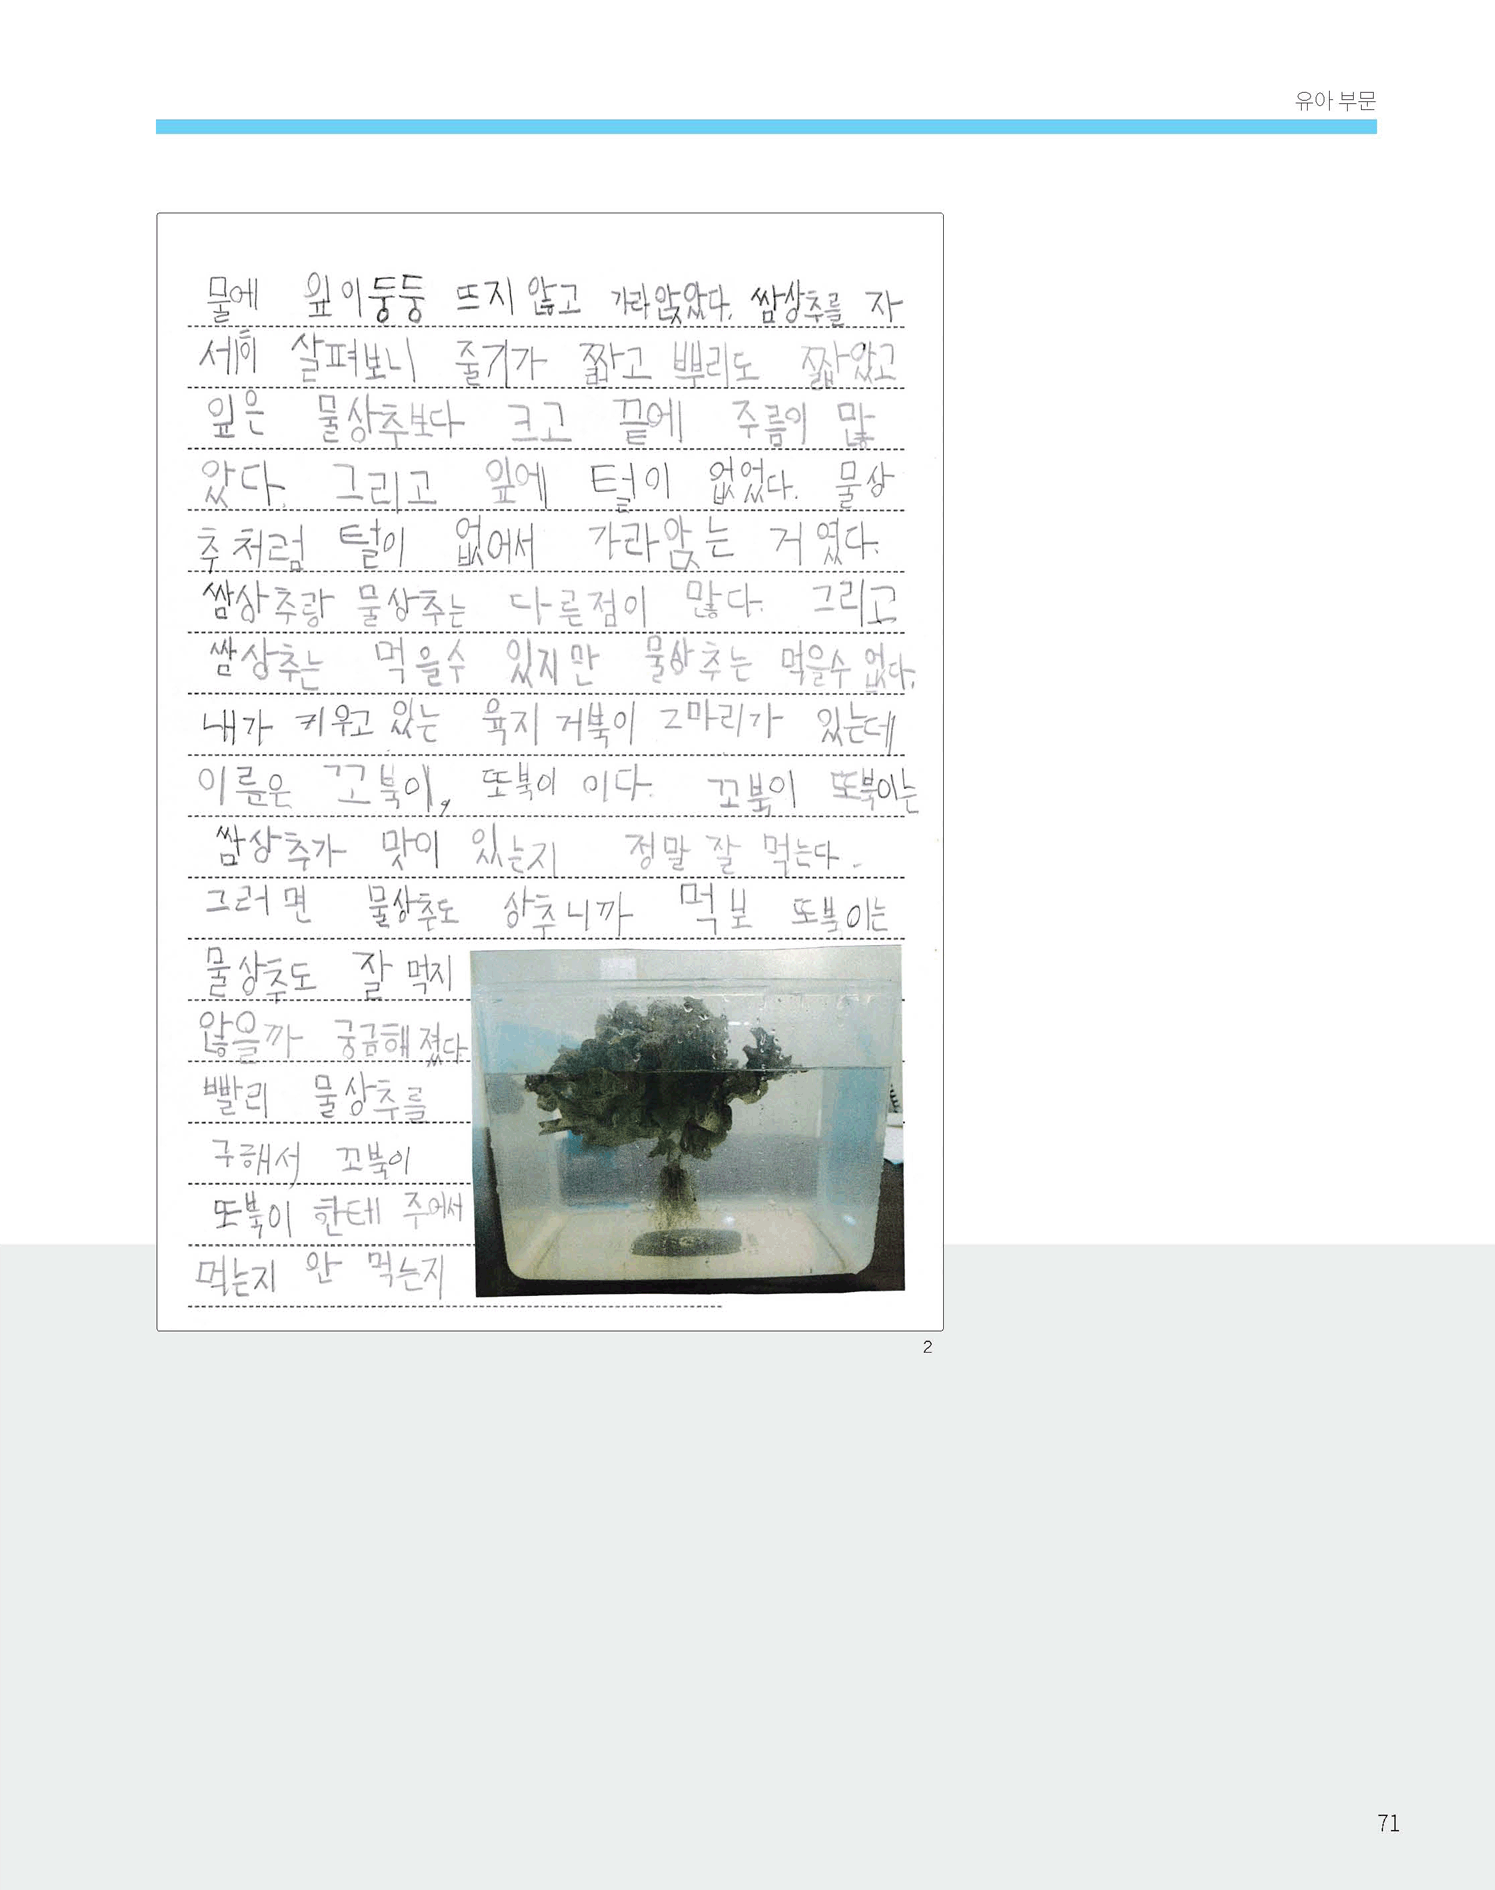 유아 부문
물에 잎이둥둥 뜨지 않고 가라앉았다. 쌈상추를 자
세히 살펴보니 줄기가 짧고 뿌리도 짧았고
잎은 물상추보다 크고 끝에 주름이 많
았다. 그리고 잎에 털이 없었다. 물상
추처럼 털이 없어서 가라앉는 거였다.
쌈상추랑 물상추는 다른점이 많다. 그리고
쌈상추는 먹을수 있지만 물상추는 먹을수 없다.
내가 키우고 있는 육지 거북이 2마리가 있는데
이름은 꼬북이, 또북이 이다. 꼬북이 또북이는
쌈상추가 맛이 있는지 정말 잘 먹는다.
그러면 물상추도 상추니까 먹보 또북이는
물상추도 잘 먹지
않을까 궁금해졌다.
빨리 물상추를
구해서 꼬북이
또북이 한테 주어서
먹는지 안 먹는지
2
71